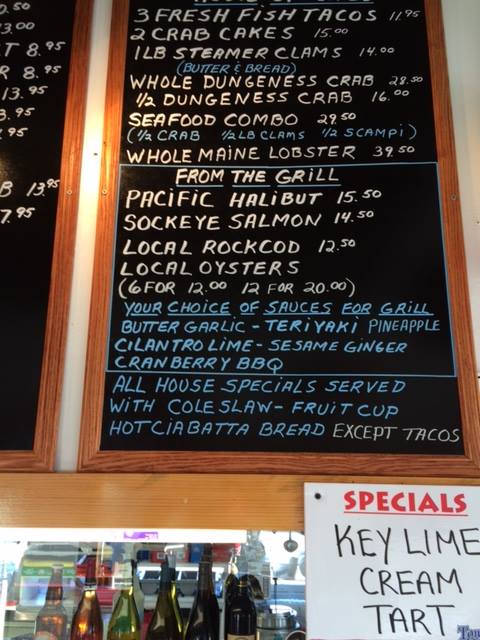 0.50
3.00
T 8.95
R 8.95
13.95
3.95
.95
B 13.95
7.95
3 FRESH FISH TACOS 11.95
2 CRAB CAKES 15.00
1 LB STEAMER CLAMS 14.00
(BUTTER & BREAD)
WHOLE DUNGENESS CRAB 28.50
1/2 DUNGENESS CRAB 16.00
SEAFOOD COMBO 29.50
(1/2 CRAB 1/2 LB CLAMS 1/2 SCAMPI)
WHOLE MAINE LOBSTER 39.50
FROM THE GRILL
PACIFIC HALIBUT 15.50
SOCKEYE SALMON 14.50
LOCAL ROCKCOD 12.50
LOCAL OYSTERS
(6 FOR 12.00 12 FOR 20.00)
YOUR CHOICE OF SAUCES FOR GRILL
BUTTER GARLIC - TERIYAKI PINEAPPLE
CILANTRO LIME - SESAME GINGER
CRANBERRY BBQ
ALL HOUSE SPECIALS SERVED
WITH COLE SLAW - FRUIT CUP
HOT CIABATTA BREAD EXCEPT TACOS
SPECIALS
KEY LIME
CREAM
TART